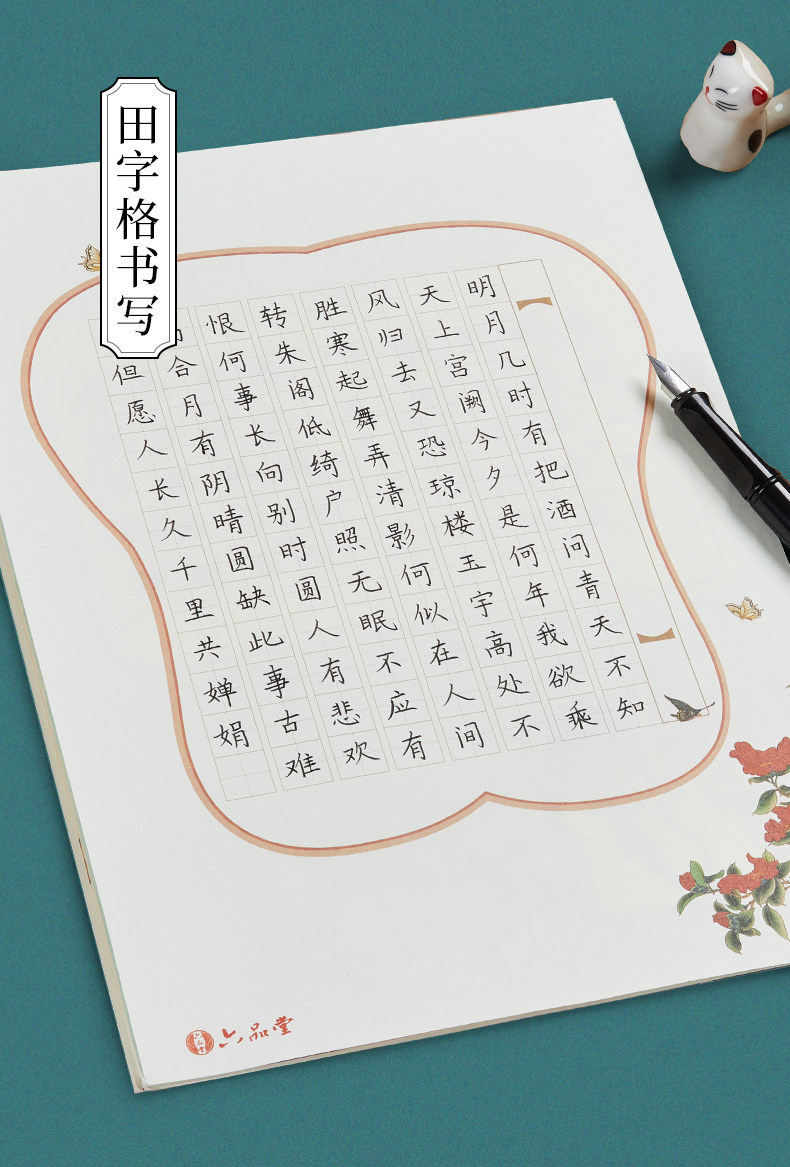 田字格书写
明月几时有把酒问青天不知
天上宫阙今夕是何年我欲乘
风归去又恐琼楼玉宇高处不
胜寒起舞弄清影何似在人间
转朱阁低绮户照无眠不应有
恨何事长向别时圆人有悲欢
合月有阴晴圆缺此事古难
但愿人长久千里共婵娟
六品堂